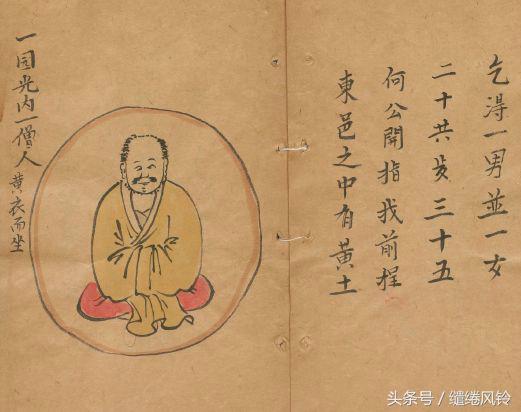 乞淂一男並一女
二十共三十五
何公開指我前程
東邑之中有黄土
一园光内一僧人 黄衣而坐
头条号 / 缱绻风铃